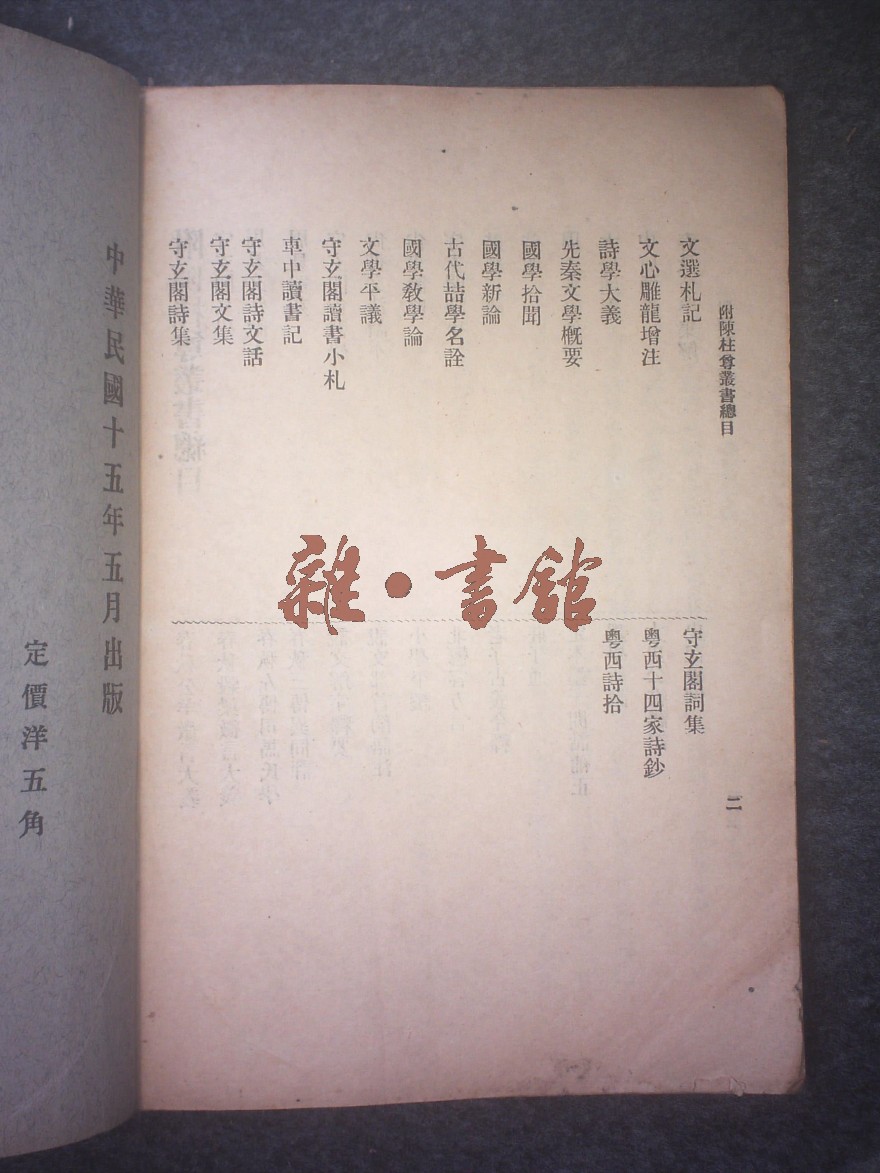 附陳柱尊叢書總目
二
文選札記
文心雕龍增注
詩學大義
先秦文學概要
國學拾聞
國學新論
古代喆學名詮
國學教學論
文學平議
守玄閣讀書小札
車中讀書記
守玄閣詩文話
守玄閣文集
守玄閣詩集
守玄閣詞集
粵西十四家詩鈔
粵西詩拾
雜·書館
中華民國十五年五月出版
定價洋五角